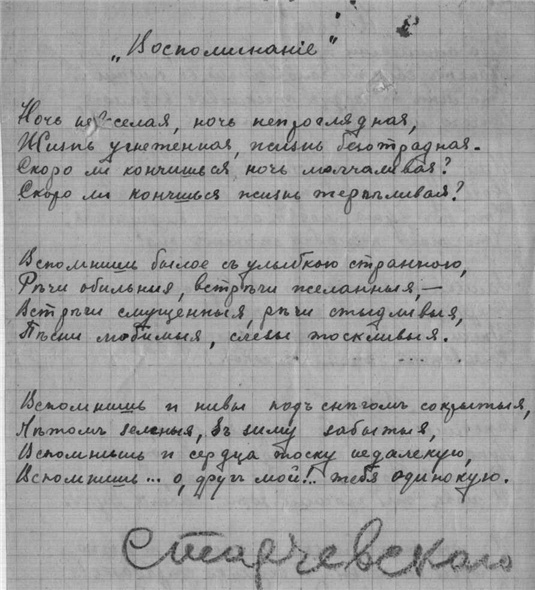 „Воспоминаніе"
Ночь невеселая, ночь непроглядная,
Жизнь угнетенная, жизнь безотрадная.
Скоро ли кончишься, ночь молчаливая?
Скоро ли кончишься жизнь терпѣливая?
Вспомнишь былое съ улыбкою странною,
Рѣчи обильныя, встрѣчи желанныя,—
Встрѣчи смущенныя, рѣчи стыдливыя,
Пѣсни любимыя, слезы тоскливыя.
Вспомнишь и нивы подъ снѣгомъ сокрытыя,
Лѣтомъ зеленыя, въ зиму забытыя,
Вспомнишь и сердца тоску недалекую,
Вспомнишь... о, другъ мой!.. тебя одинокую.
Старчевскаго